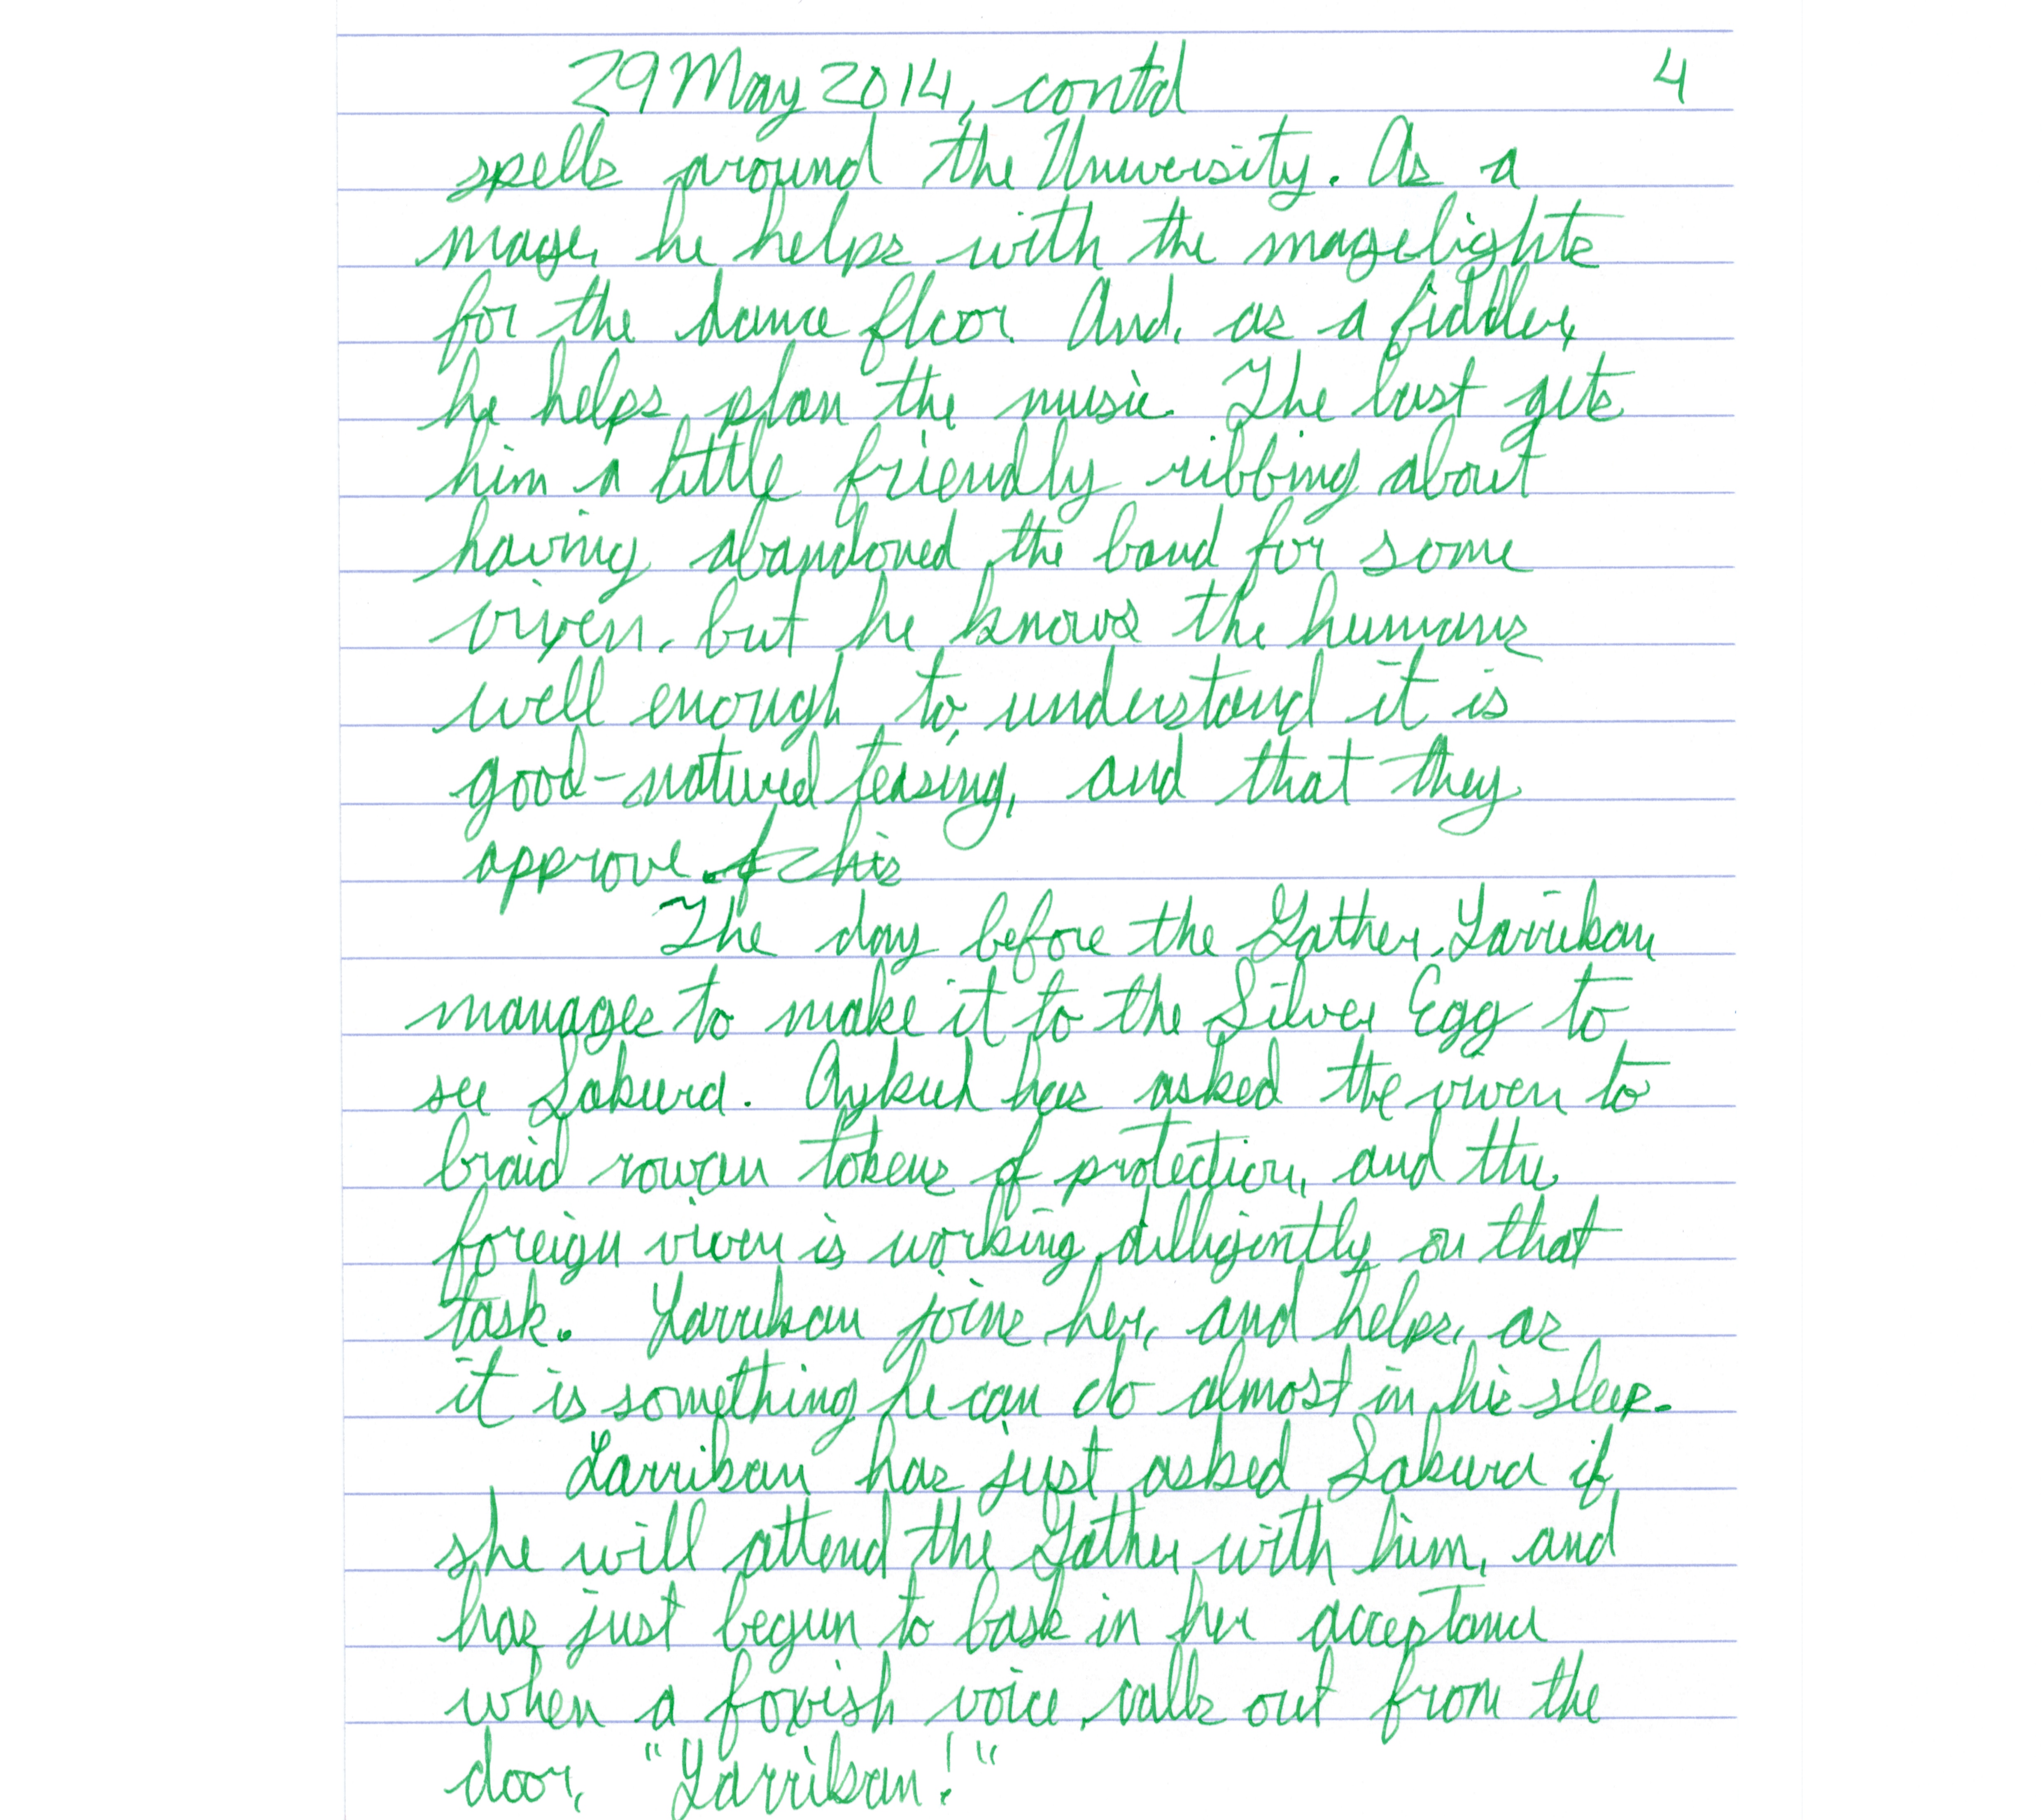 29 May 2014, contd 4
spells around the University. As a
mage, he helps with the magelights
for the dance floor. And, as a fiddler,
he helps plan the music. The last gets
him a little friendly ribbing about
having abandoned the band for some
vixen, but he knows the humans
well enough to understand it is
good-natured teasing, and that they
approve of his
The day before the Gather, Larrikan
manages to make it to the Silver Egg to
see Sakura. has asked the vixen to
braid rowan tokens of protection, and the
foreign vixen is working dilligently on that
task. Larrikan joins her, and helps, as
it is something he can do almost in his sleep.
Larrikan has just asked Sakura if
she will attend the Gather with him, and
has just begun to bask in her acceptance
when a foxish voice calls out from the
door, "Larrikan!"